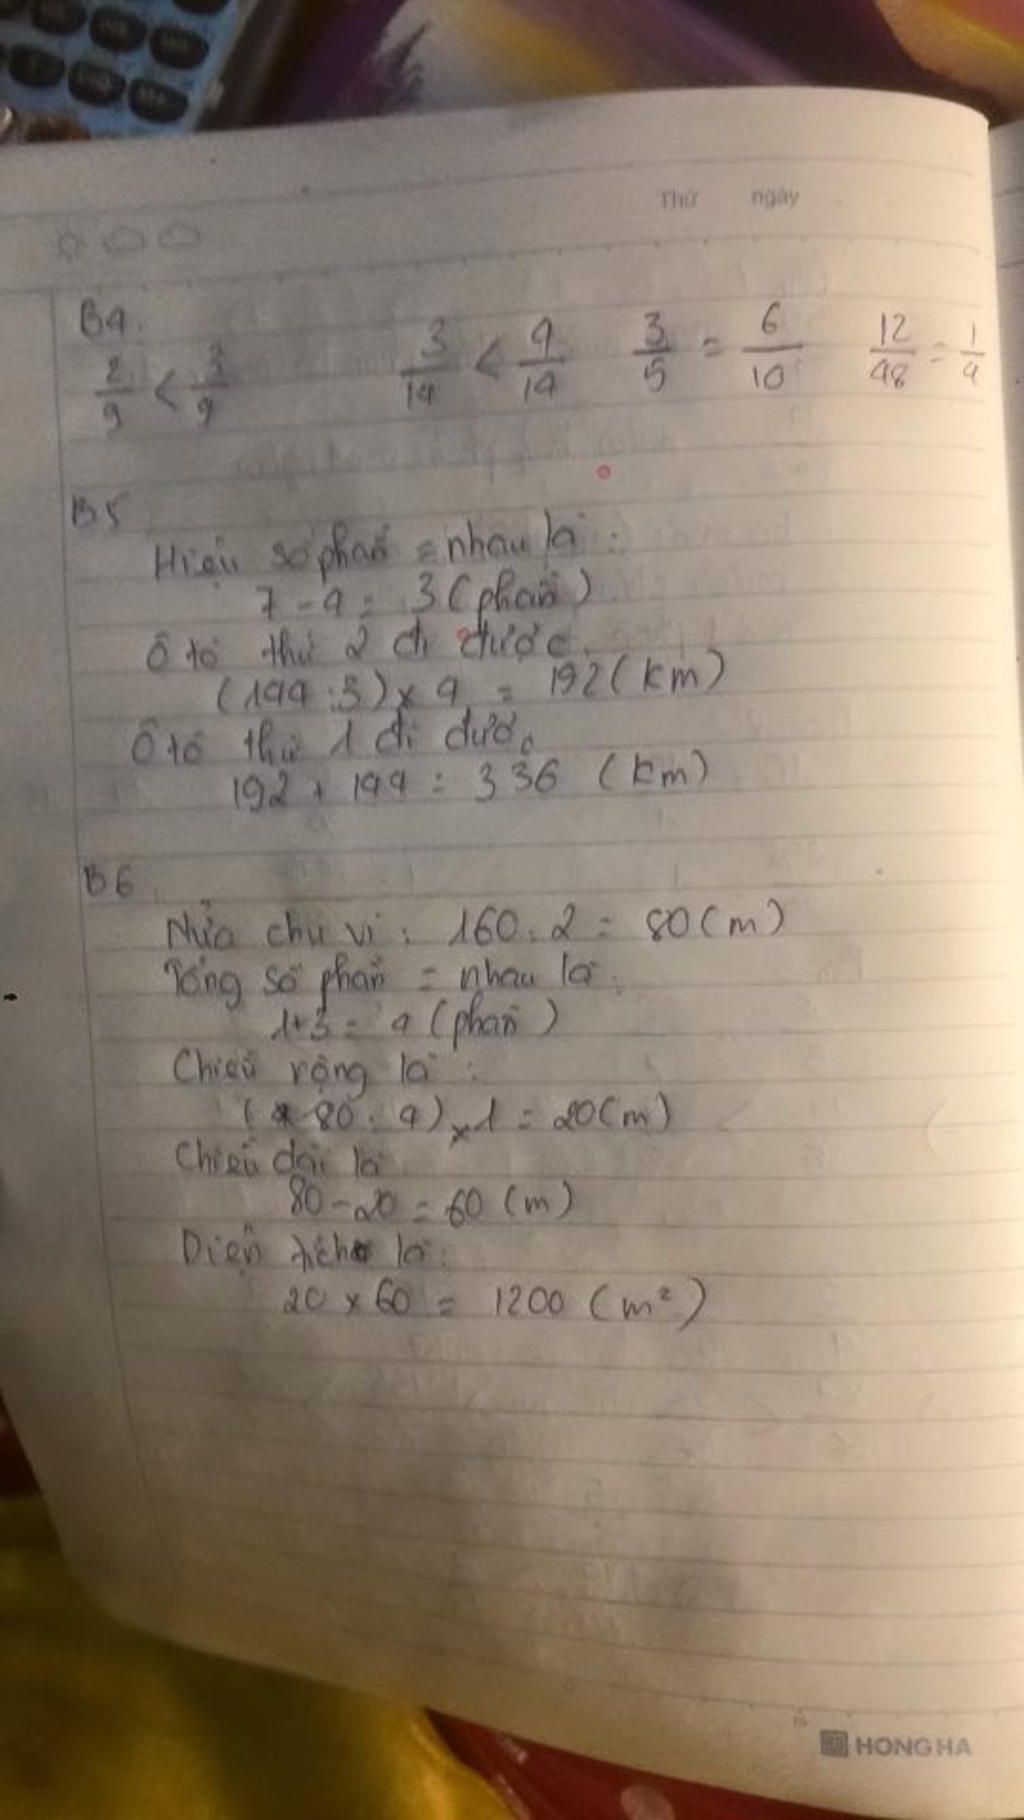 Thứ ngày
B4.
2/9 < 3/9 3/14 < 4/14 3/5 = 6/10 12/48 = 1/4
B5
Hiệu số phần = nhau là :
7 - 4 = 3 (phần)
Ô tô thứ 2 đi được
(144 : 3) x 4 = 192 (km)
Ô tô thứ 1 đi được
192 + 144 = 336 (km)
B6
Nửa chu vi : 160 : 2 = 80 (m)
Tổng số phần = nhau là :
1+3 = 4 (phần)
Chiều rộng là :
(80 : 4) x 1 = 20 (m)
Chiều dài là
80 - 20 = 60 (m)
Diện tích là :
20 x 60 = 1200 (m²)
HONG HA